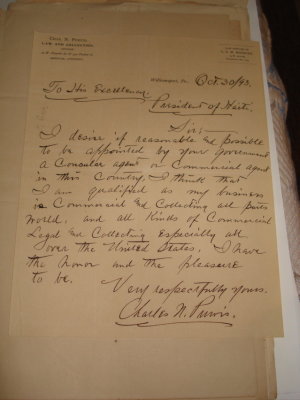 LAW AND COLLECTION,
Williamsport, Pa., Oct. 30/93.
To His Excellency
President of Haiti.
Sir;—
I desire if reasonable and possible
to be appointed by your Government
a Consular agent or Commercial agent
in this Country. I think that
I am qualified as my business
is Commercial and Collecting all parts
World, and all Kinds of Commercial
Legal and Collecting especially all
over the United States. I have
the honor and the pleasure
to be.
Very respectfully yours.
Charles N. Purvis.